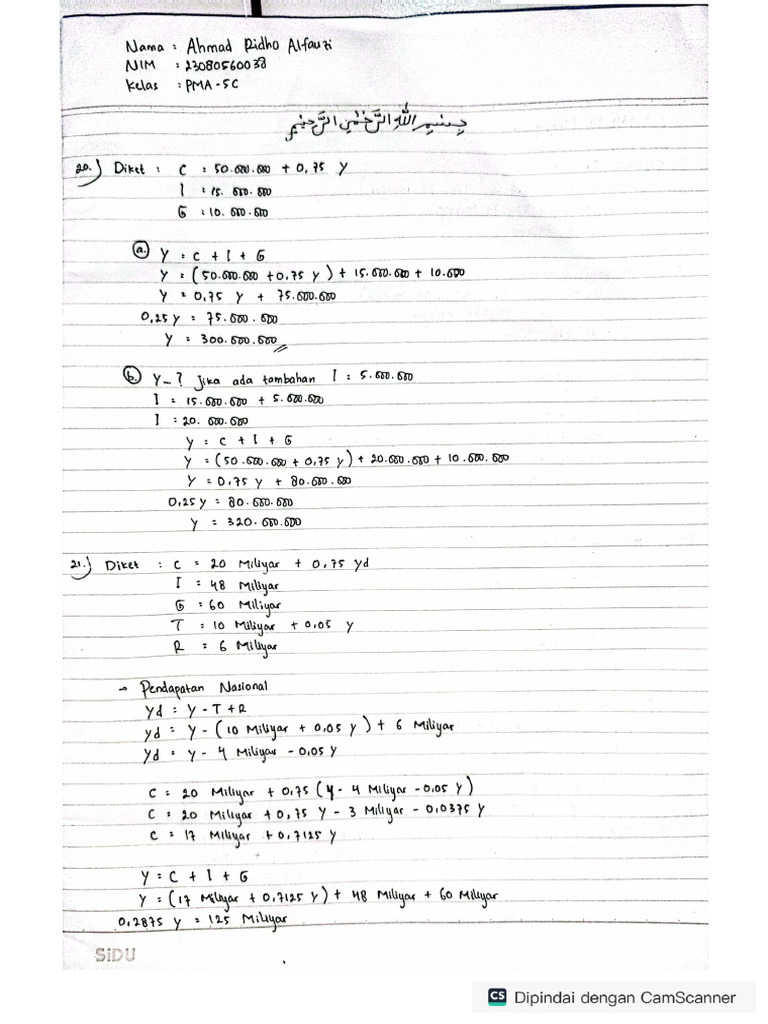 Nama : Ahmad Ridho Alfauzi
NIM : 23080560038
Kelas : PMA-5C
بسم الله الرحمن الرحيم
20.) Diket : C : 50.000.000 + 0,75 Y
I : 15.000.000
G : 10.000.000
a. Y = C + I + G
Y = (50.000.000 + 0,75 Y) + 15.000.000 + 10.000
Y = 0,75 Y + 75.000.000
0,25 Y = 75.000.000
Y = 300.000.000
b. Y_? Jika ada tambahan I = 5.000.000
I = 15.000.000 + 5.000.000
I = 20.000.000
Y = C + I + G
Y = (50.000.000 + 0,75 Y) + 20.000.000 + 10.000.000
Y = 0,75 Y + 80.000.000
0,25 Y = 80.000.000
Y = 320.000.000
21.) Diket : C = 20 Miliyar + 0,75 Yd
I = 48 Miliyar
G = 60 Miliyar
T = 10 Miliyar + 0,05 Y
R = 6 Miliyar
→ Pendapatan Nasional
Yd = Y - T + R
Yd = Y - (10 Miliyar + 0,05 Y) + 6 Miliyar
Yd = Y - 4 Miliyar - 0,05 Y
C = 20 Miliyar + 0,75 (Y - 4 Miliyar - 0,05 Y)
C = 20 Miliyar + 0,75 Y - 3 Miliyar - 0,0375 Y
C = 17 Miliyar + 0,7125 Y
Y = C + I + G
Y = (17 Miliyar + 0,7125 Y) + 48 Miliyar + 60 Miliyar
0,2875 Y = 125 Miliyar
SiDU
CS Dipindai dengan CamScanner